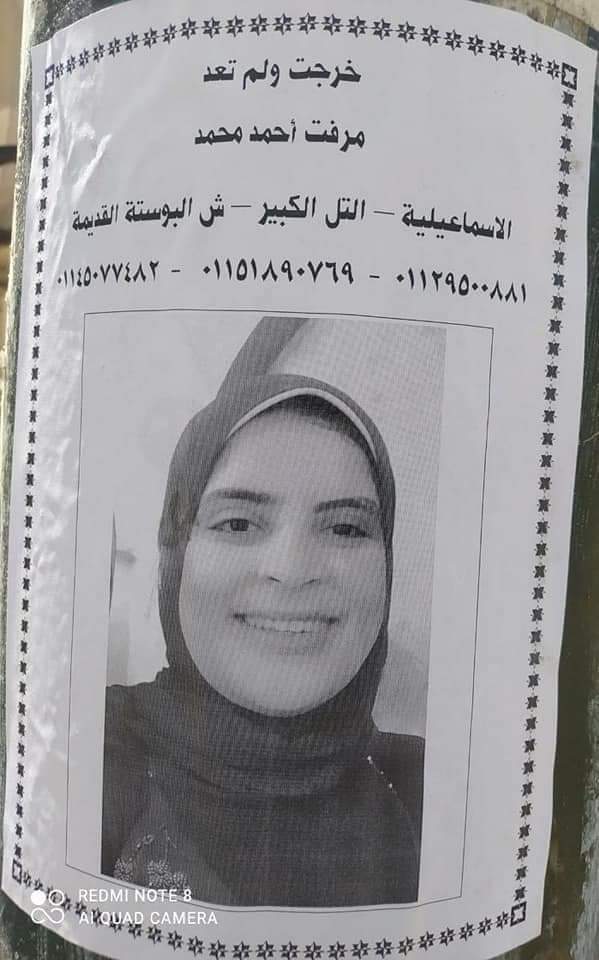 خرجت ولم تعد
مرفت أحمد محمد
الاسماعيلية – التل الكبير – ش البوستة القديمة
٠١١٢٩٥٠٠٨٨١ - ٠١١٥١٨٩٠٧٦٩ - ٠١١٤٥٠٧٧٤٨٢
REDMI NOTE 8
AI QUAD CAMERA